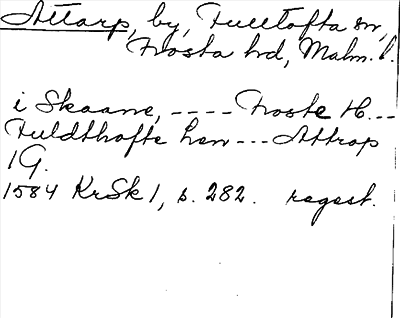 Attarp, by, Fulltofta sn,
Frosta hd, Malm. l.
i Skaane, ---- Froste H. --
Fuldthofte Sun --- Attrop
1 G.
1584 KrSk 1, s. 282. regest.